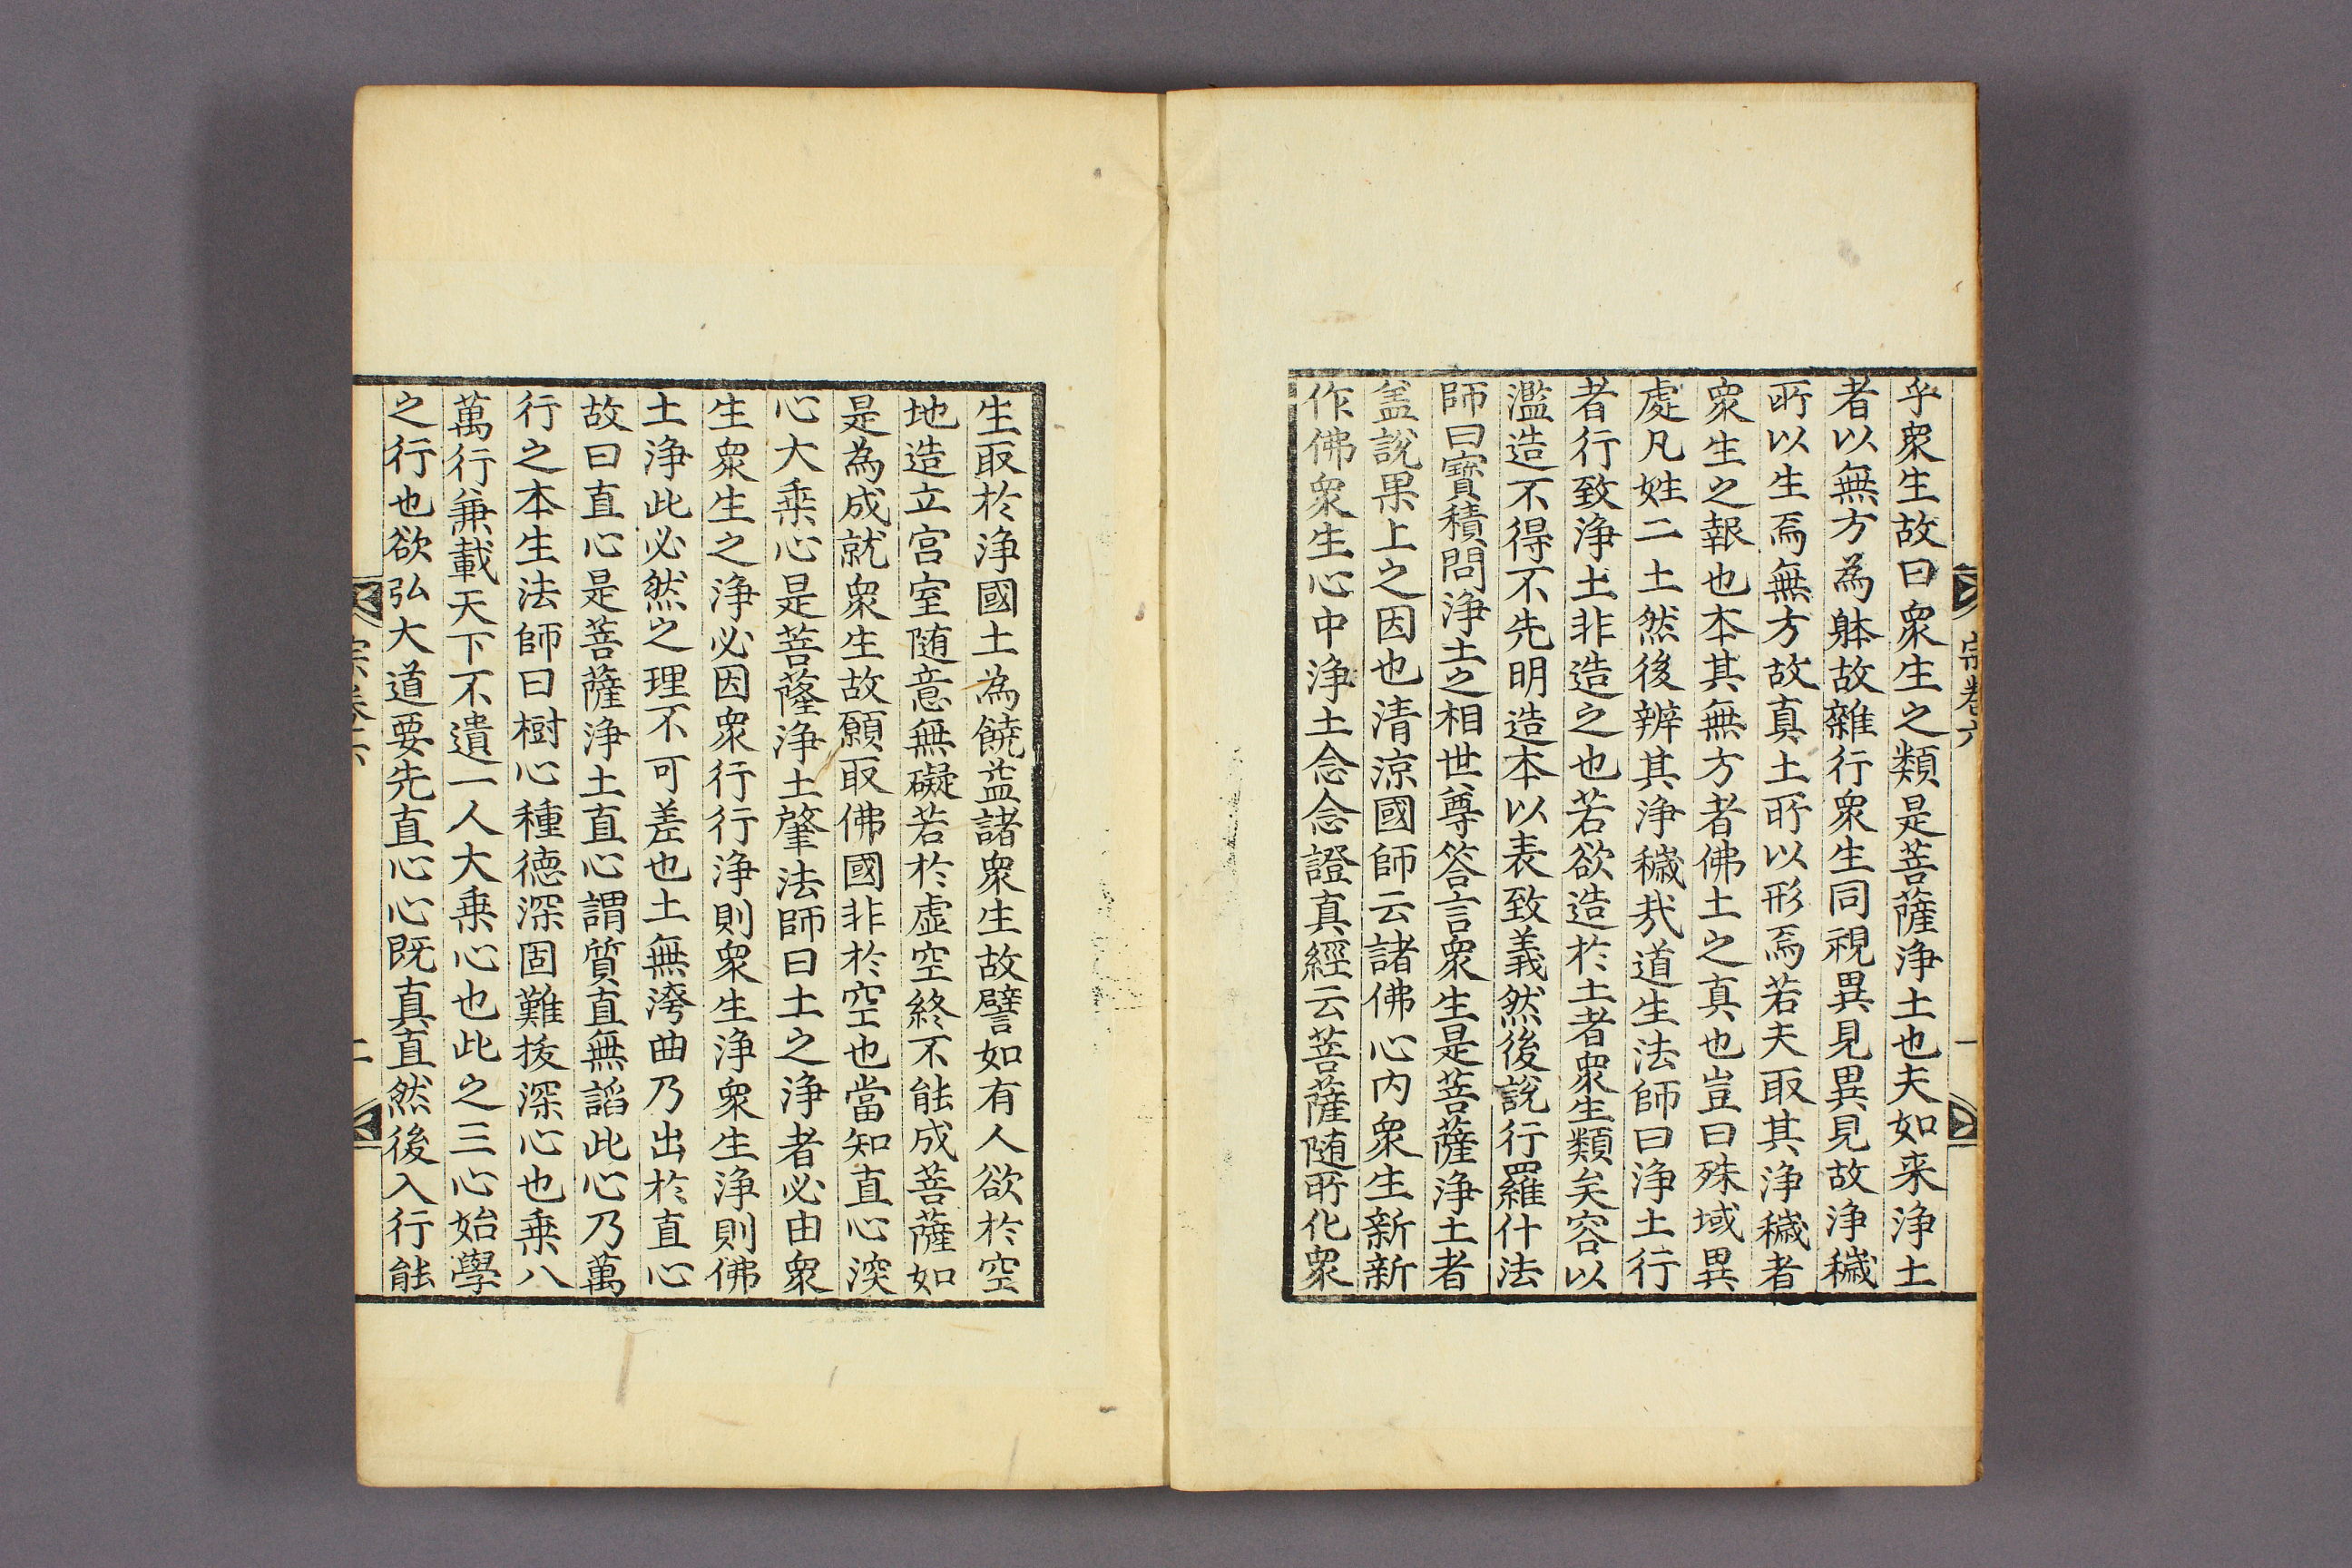 宗卷六
一
乎衆生故曰衆生之類是菩薩浄土也夫如来浄土
者以無方為躰故雜行衆生同視異見異見故浄穢
所以生焉無方故真土所以形焉若夫取其浄穢者
衆生之報也本其無方者佛土之真也豈曰殊域異
處凡姓二土然後辨其浄穢㢤道生法師曰浄土行
者行致浄土非造之也若欲造於土者衆生類矣容以
濫造不得不先明造本以表致義然後說行羅什法
師曰寳積問浄土之相世尊答言衆生是菩薩浄土者
盖說果上之因也清涼國師云諸佛心內衆生新新
作佛衆生心中浄土念念證真經云菩薩随所化衆
生取於浄國土為饒益諸衆生故譬如有人欲於空
地造立宮室随意無礙若於虛空終不能成菩薩如
是為成就衆生故願取佛國非於空也當知直心深
心大乗心是菩薩浄土肇法師曰土之浄者必由衆
生衆生之浄必因衆行行浄則衆生浄衆生浄則佛
土浄此必然之理不可差也土無洿曲乃出於直心
故曰直心是菩薩浄土直心謂質直無謟此心乃萬
行之本生法師曰樹心種德深固難拔深心也乗八
萬行兼載天下不遺一人大乗心也此之三心始學
之行也欲弘大道要先直心心既真直然後入行能
宗卷六
二